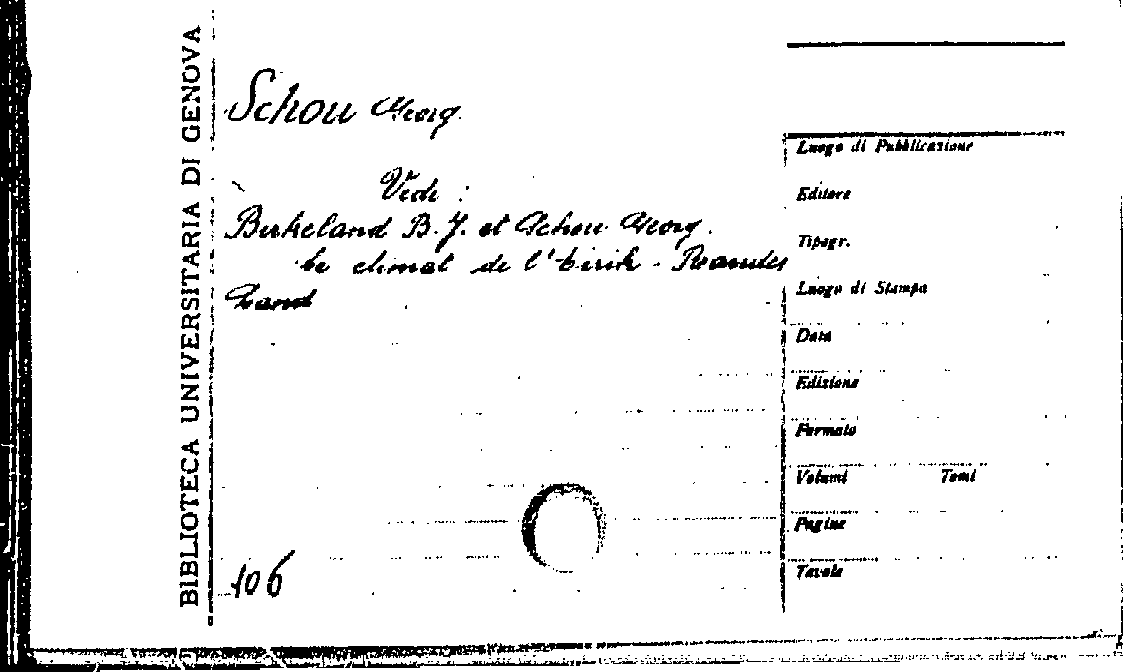 BIBLIOTECA UNIVERSITARIA DI GENOVA
Schou Georg.
Vedi :
Birkeland B. J. et Schou Georg.
Le climat de l'Eirik - Raudes
Land
106
Luogo di Pubblicazione
Editore
Tipogr.
Luogo di Stampa
Data
Edizione
Formato
Volumi Tomi
Pagine
Tavole